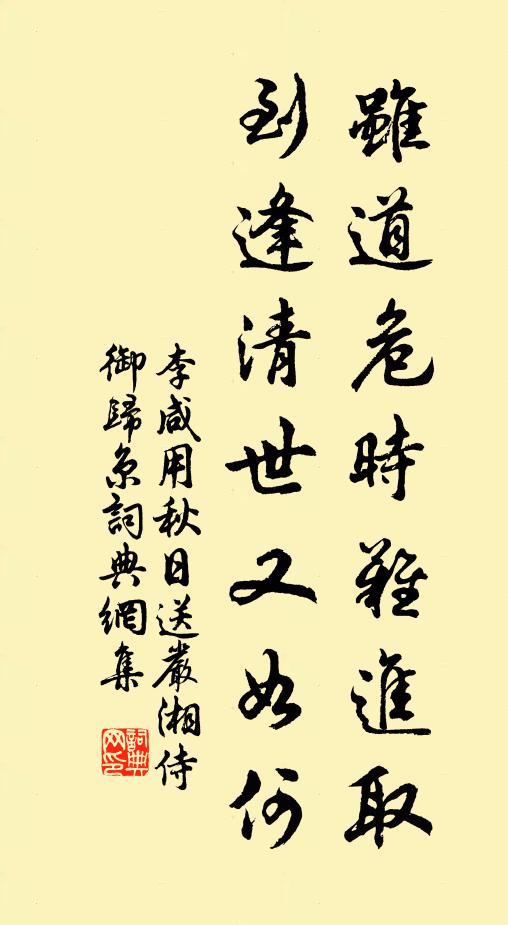 雖道危時難進取
到逢清世又如何
李咸用秋日送嚴湘侍
御歸京詞典網集
詞典
网印